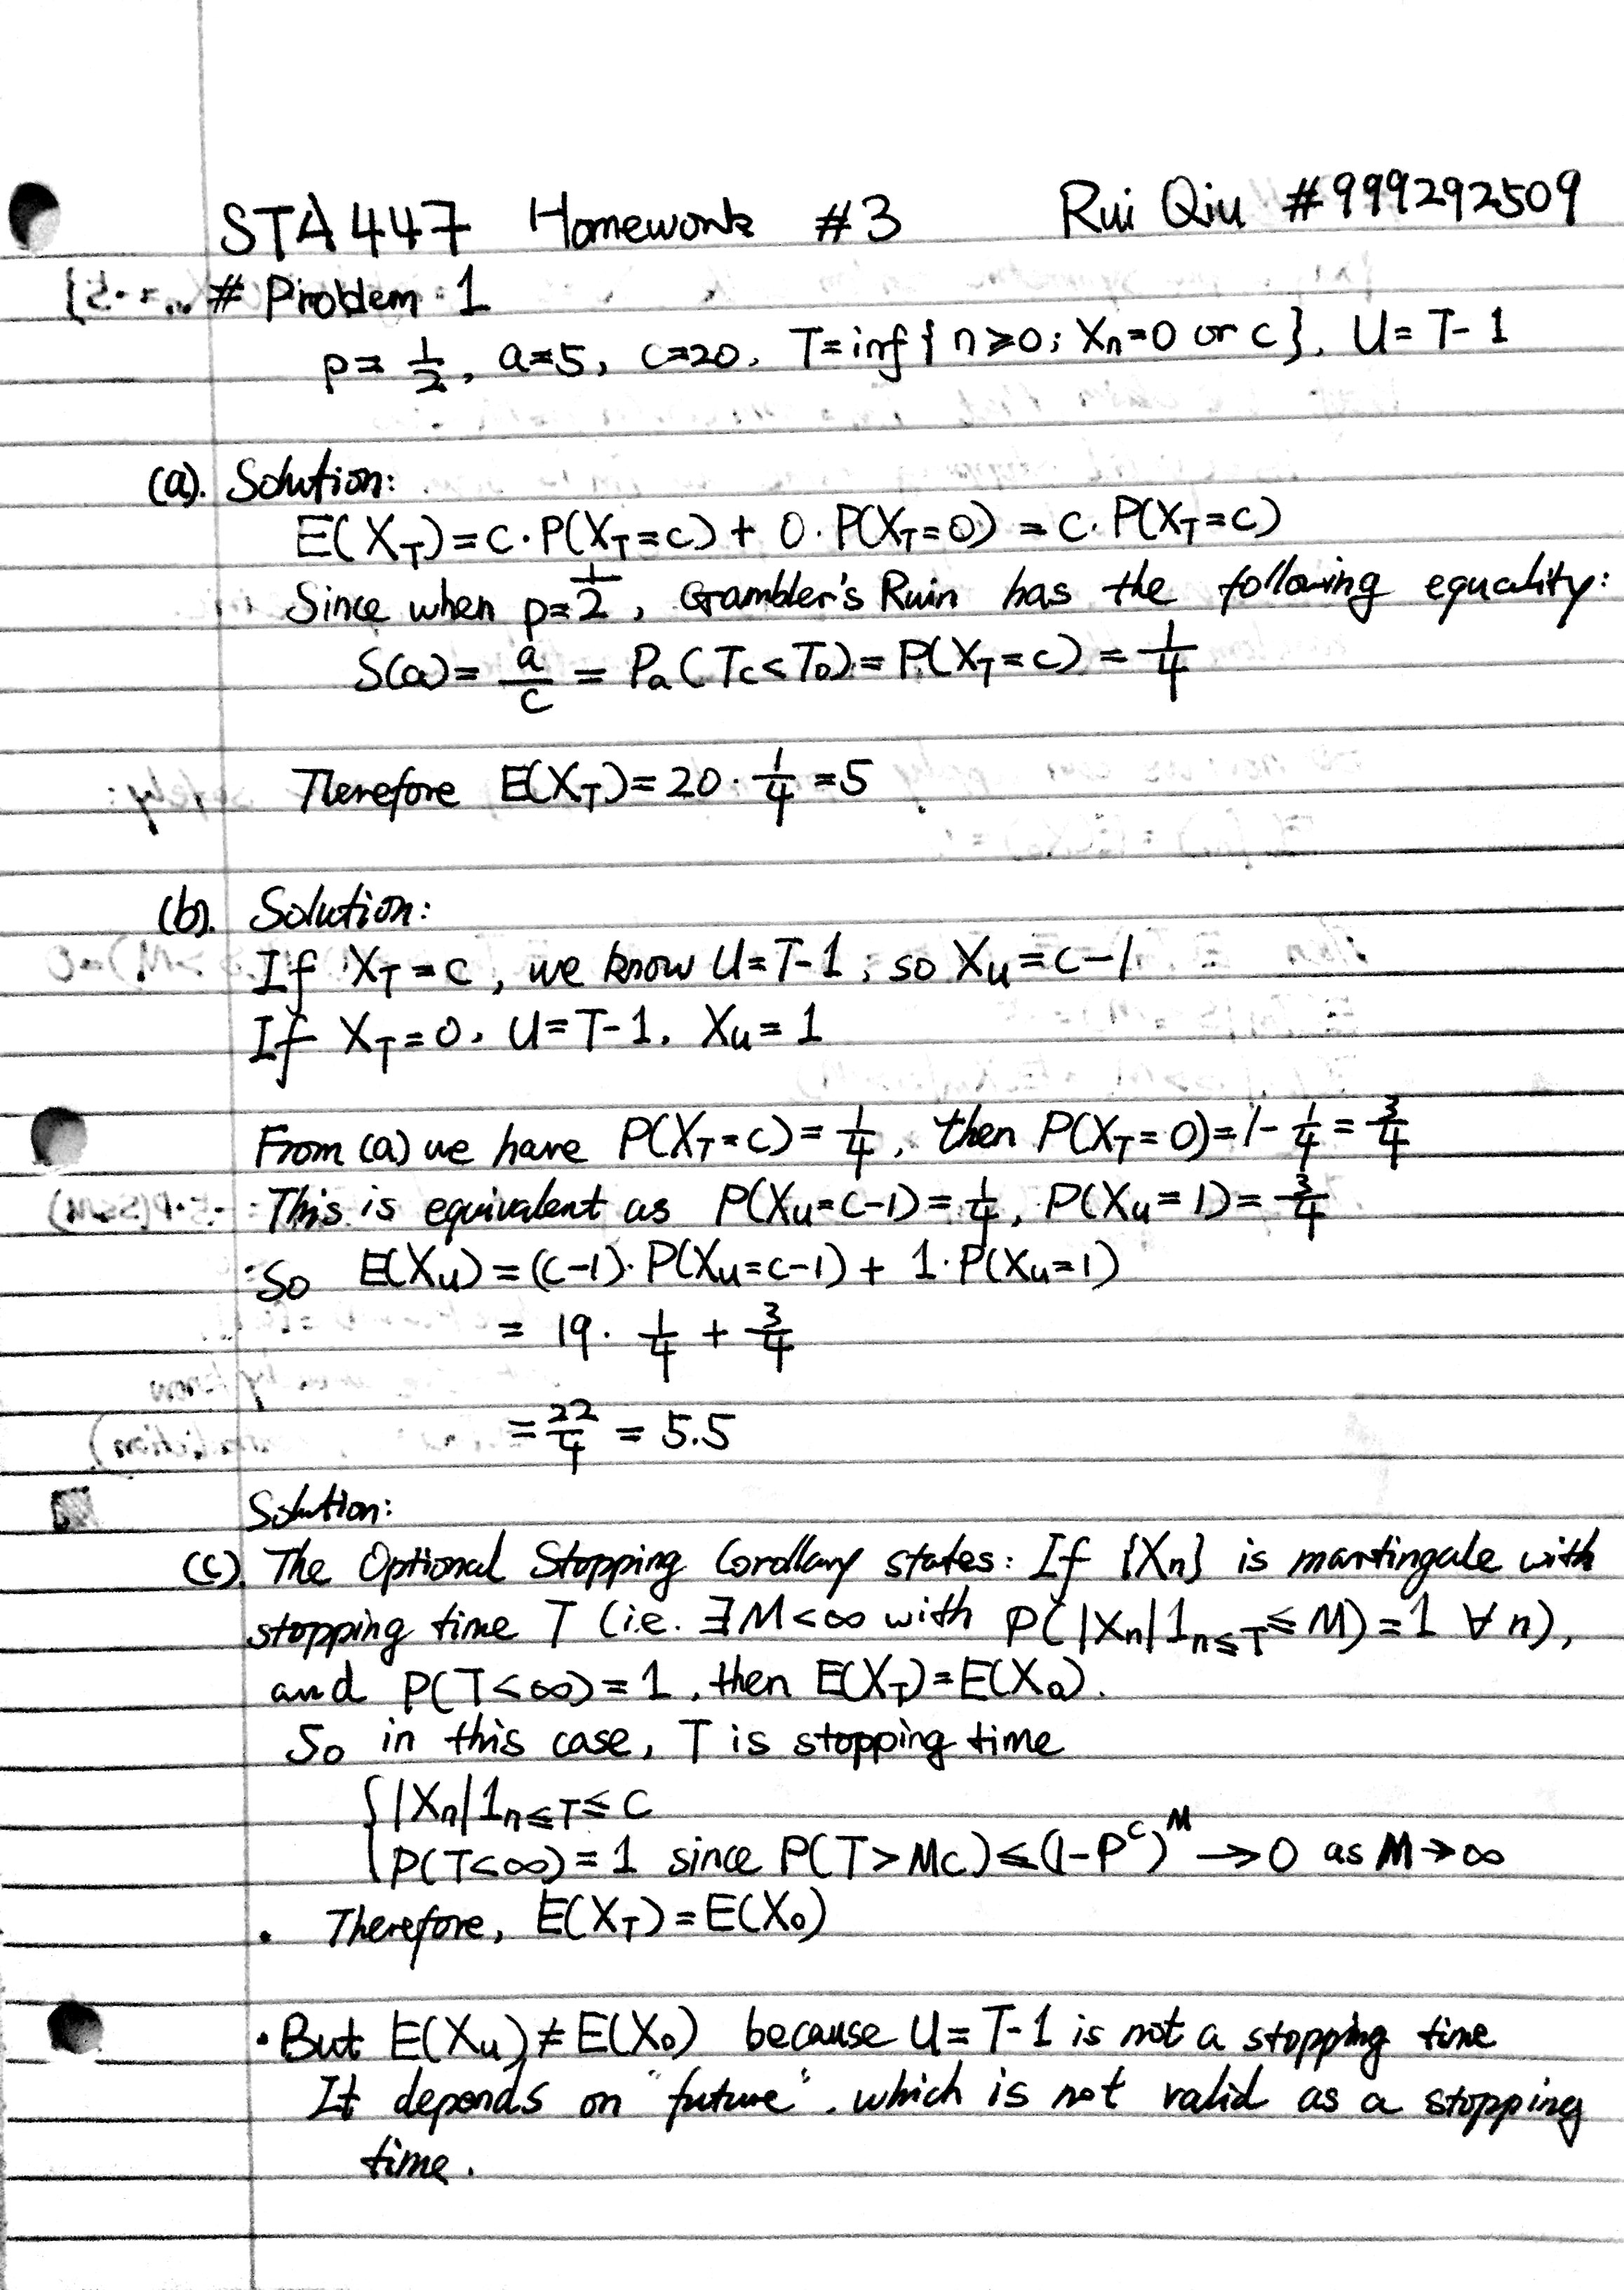 STA447 Homework #3 Rui Qiu #999292509
# Problem 1
p = 1/2, a=5, c=20, T=inf{n≥0; Xn=0 or c}, U=T-1
(a). Solution:
E(X_T)=c·P(X_T=c)+0·P(X_T=0)=c·P(X_T=c)
Since when p=1/2, Grambler's Ruin has the following equality:
S(a)= a/c = Pa(Tc<T0)=P(X_T=c)=1/4
Therefore E(X_T)=20·1/4=5
(b). Solution:
If X_T=c, we know U=T-1, so X_U=c-1
If X_T=0, U=T-1, X_U=1
From (a) we have P(X_T=c)=1/4, then P(X_T=0)=1-1/4=3/4
This is equivalent as P(X_U=c-1)=1/4, P(X_U=1)=3/4
So E(X_U)=(c-1)·P(X_U=c-1)+1·P(X_U=1)
= 19·1/4+3/4
=22/4=5.5
Solution:
(c). The Optional Stopping Corollary states: If {Xn} is martingale with
stopping time T (i.e. ∃M<∞ with P(|Xn|1_{n≤T}≤M)=1 ∀n),
and P(T<∞)=1, then E(X_T)=E(X_0).
So in this case, T is stopping time
{|Xn|1_{n≤T}≤C
P(T<∞)=1 since P(T>Mc)≤(1-P^C)^M→0 as M→∞
• Therefore, E(X_T)=E(X_0)
• But E(X_U)≠E(X_0) because U=T-1 is not a stopping time
It depends on "future", which is not valid as a stopping
time.